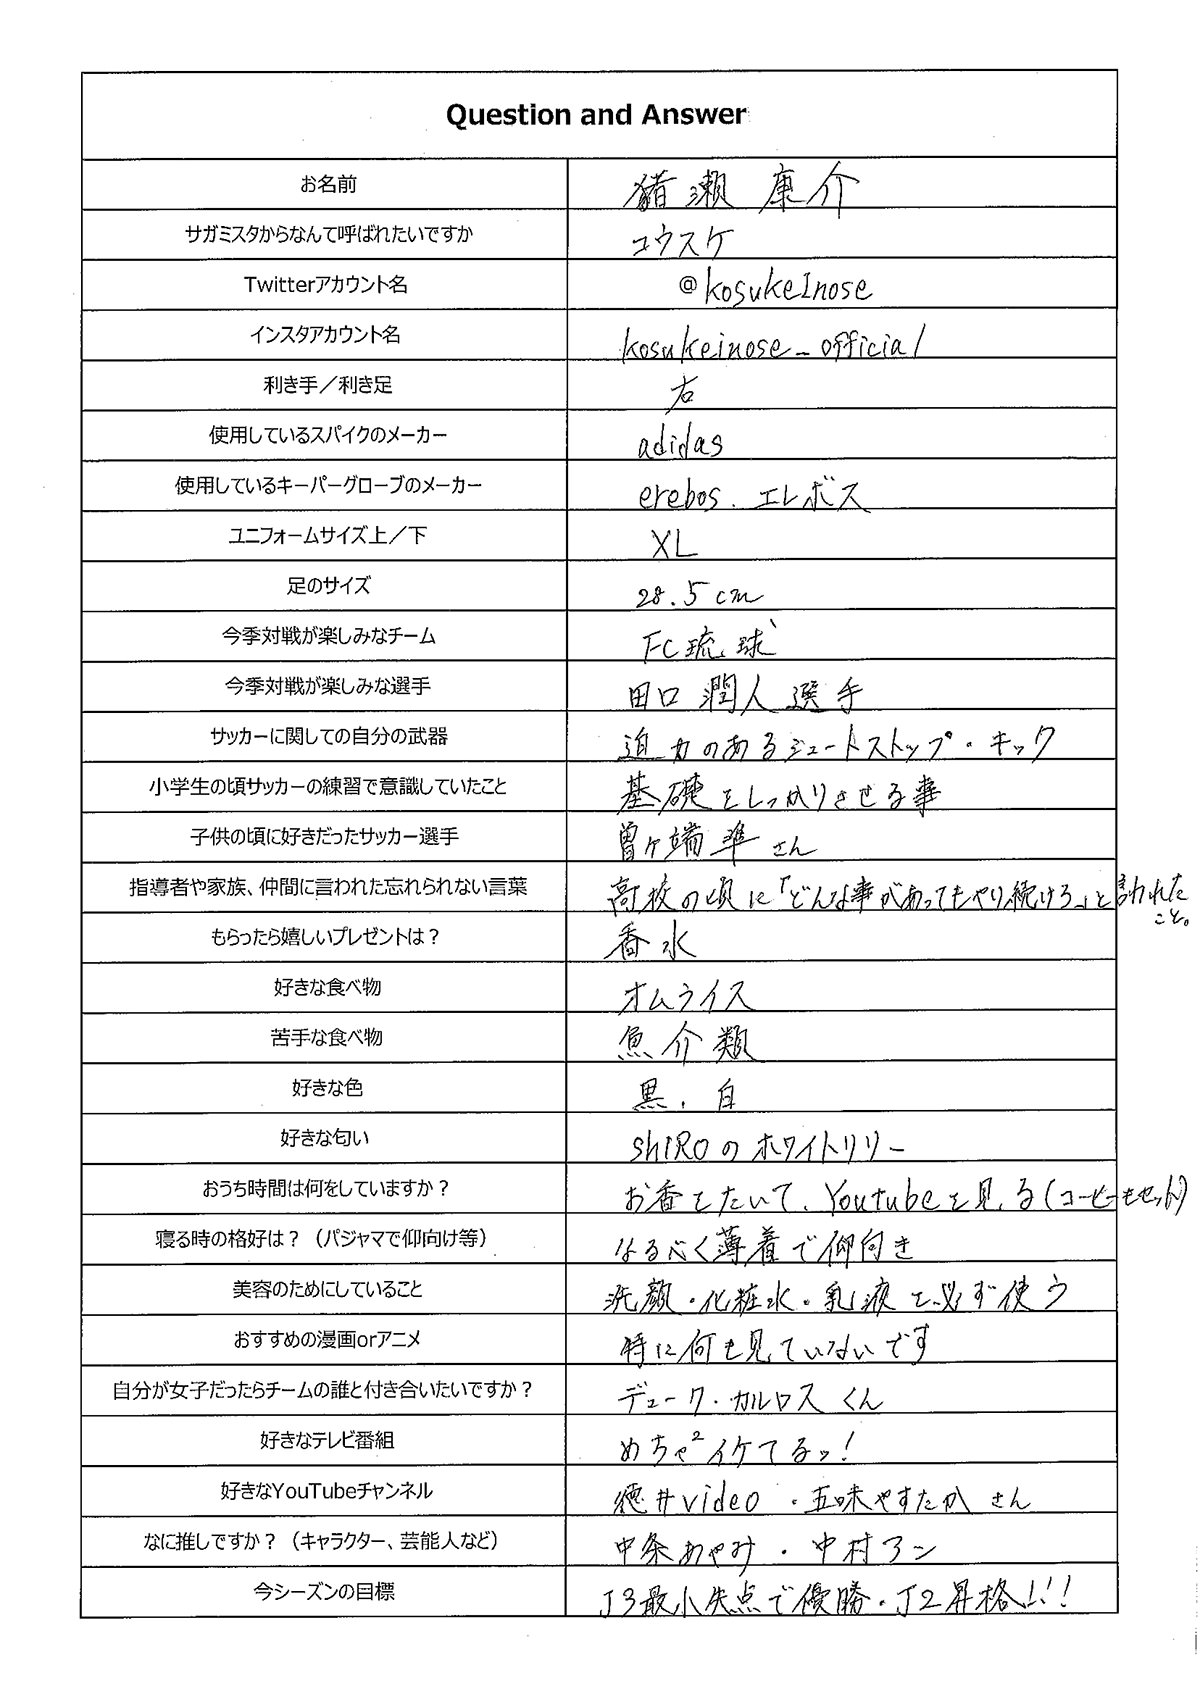 Question and Answer
お名前 猪瀬 康介
サガミスタからなんて呼ばれたいですか コウスケ
Twitterアカウント名 @kosukeInose
インスタアカウント名 kosukeinose_official
利き手／利き足 右
使用しているスパイクのメーカー adidas
使用しているキーパーグローブのメーカー erebos. エレボス
ユニフォームサイズ上／下 XL
足のサイズ 28.5cm
今季対戦が楽しみなチーム FC琉球
今季対戦が楽しみな選手 田口 潤人 選手
サッカーに関しての自分の武器 迫力のあるシュートストップ・キック
小学生の頃サッカーの練習で意識していたこと 基礎をしっかりさせる事
子供の頃に好きだったサッカー選手 曽ケ端 準 さん
指導者や家族、仲間に言われた忘れられない言葉 高校の頃に「どんな事があってもやり続けろ」と言われた
こと。
もらったら嬉しいプレゼントは？ 香水
好きな食べ物 オムライス
苦手な食べ物 魚介類
好きな色 黒、白
好きな匂い shIROのホワイトリリー
おうち時間は何をしていますか？ お香をたいて、Youtubeを見る(コーヒーもセット)
寝る時の格好は？（パジャマで仰向け等） なるべく薄着で仰向き
美容のためにしていること 洗顔・化粧水・乳液を必ず使う
おすすめの漫画orアニメ 特に何も見ていないです
自分が女子だったらチームの誰と付き合いたいですか？ デューク・カルロスくん
好きなテレビ番組 めちゃ²イケてるッ!
好きなYouTubeチャンネル 徳井video・五味やすたかさん
なに推しですか？（キャラクター、芸能人など） 中条あやみ・中村アン
今シーズンの目標 J3最小失点で優勝・J2昇格!!!